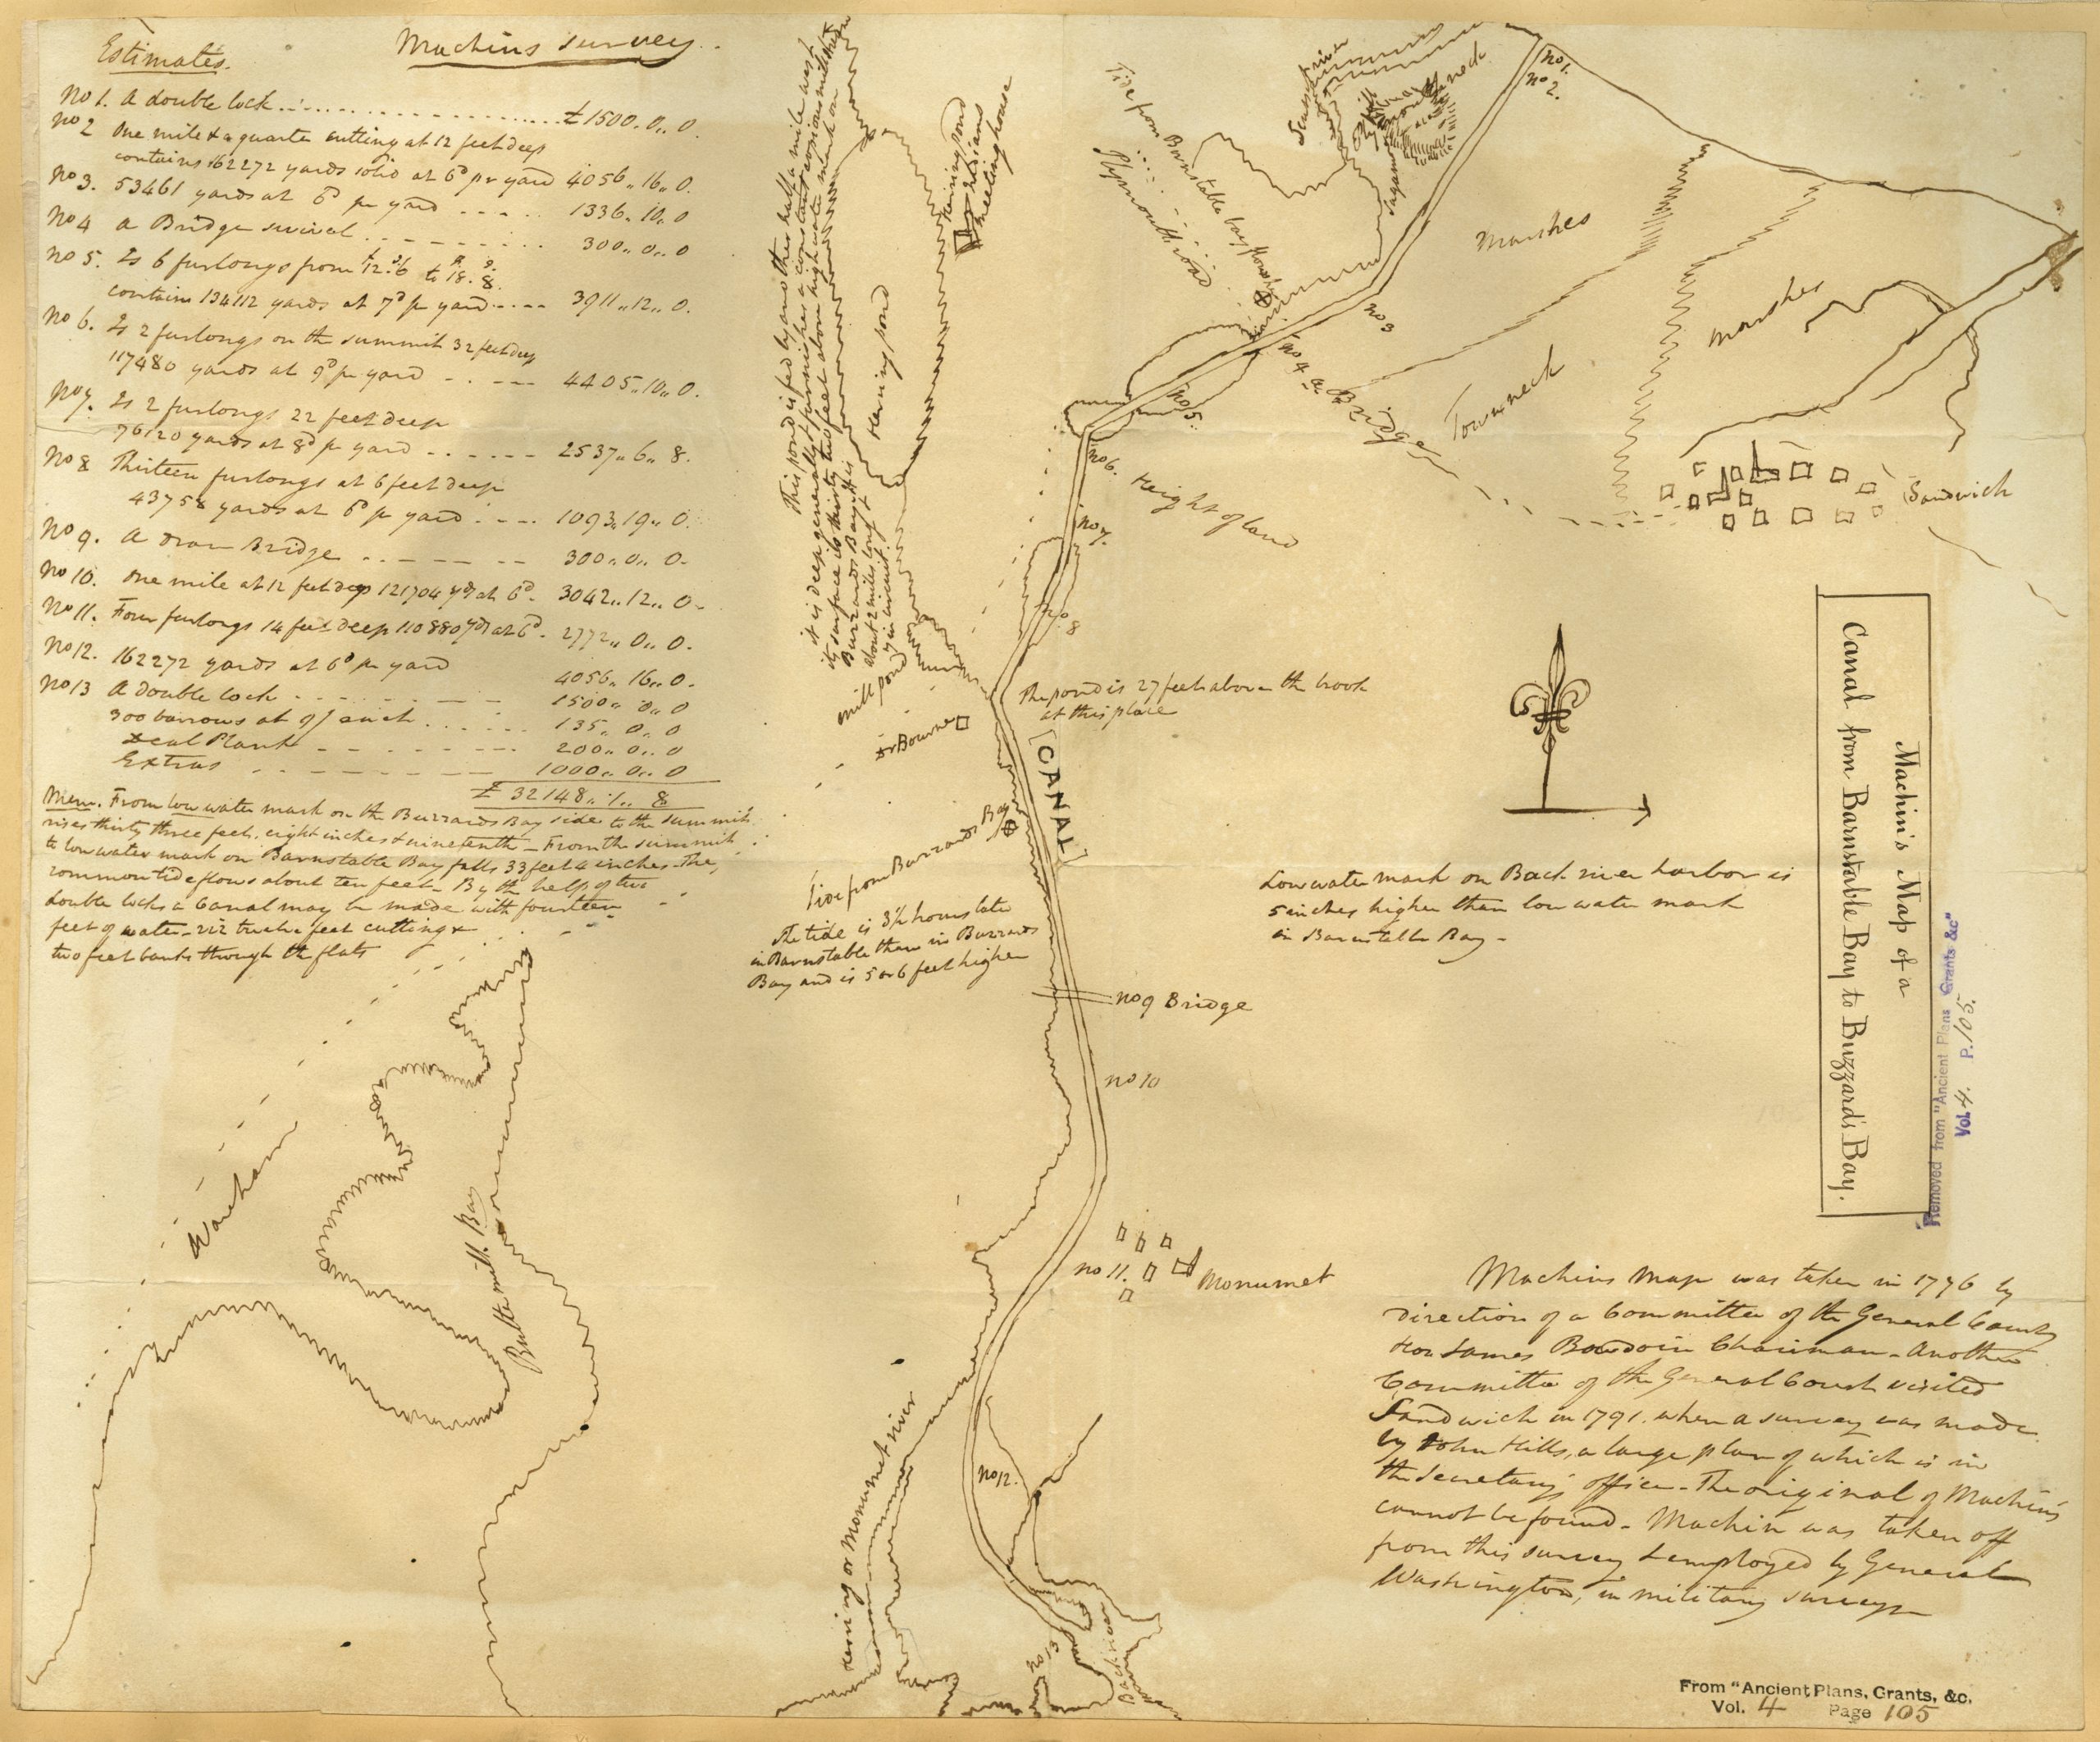 Estimates.
Machins survey.
No 1. A double lock £1500.. 0.. 0
No 2 One mile & a quarter cutting at 12 feet deep
contains 162272 yards solid at 6d pr yard 4056.. 16.. 0.
No 3. 53461 yards at 6d pr yard 1336.. 10.. 0
No 4 a Bridge 300.. 0.. 0
No 5. Is 6 furlongs from 12.. 6 to 18.. 8.
contains 134112 yards at 7d pr yard 3911.. 12.. 0.
No 6. Is 2 furlongs on the summit 32 feet deep
117480 yards at 9d pr yard 4405.. 10.. 0.
No 7. Is 2 furlongs 22 feet deep
76120 yards at 8d pr yard 2537.. 6.. 8.
No 8 Thirteen furlongs at 6 feet deep
43758 yards at 6d pr yard 1093.. 19.. 0.
No 9. A draw Bridge 300.. 0.. 0.
No 10. One mile at 12 feet deep 121704 yds at 6d. 3042.. 12.. 0.
No 11. Four furlongs 14 feet deep 110880 yds at 6d. 2772.. 0.. 0.
No 12. 162272 yards at 6d pr yard 4056.. 16.. 0.
No 13 A double lock 1500.. 0.. 0
300 barrows at 9/ each 135.. 0.. 0
Deal Plank 200.. 0.. 0
Extras 1000.. 0.. 0
£ 32148.. 1.. 8
Mem. From low water mark on the Buzzards Bay side to the summit
rises thirty three feet, eight inches & nine tenth – From the summit
to low water mark on Barnstable Bay falls 33 feet 4 inches – The
common tide flows about ten feet – By the help of two
double locks a Canal may be made with fourteen
feet of water – viz twelve feet cutting &
two feet banks through the flats
This pond is fed by another half a mile west
it is deep & generally furnishes a constant & copious mill stream
its surface is thirty two feet above high water mark on
Buzzards Bay it is
about 2 miles long &
7 in circuit.
Hering pond
Hering pond
Indians
Meeting house
Mill pond
Dr Bourne
Tide from Barnstable bay flows to
Plymouth road
Scusset river
Sagamore
neck
No 1.
No 2.
No 3
No 4 a Bridge
No 5.
No 6.
Height of land
No 7.
No 8
Marshes
Marshes
Town neck
Sandwich
The pond is 27 feet above the brook
at this place
CANAL
Tide from Buzzards Bay
The tide is 3½ hours late
in Barnstable than in Buzzards
Bay and is 5 or 6 feet higher
Low water mark on Back river harbor is
5 inches higher than low water mark
in Barnstable Bay –
No 9 Bridge
No 10
No 11.
Monumet
No 12.
No 13
Back river
Hering or Monumet river
Wareham
Buttermill Bay
Machin's Map of a
Canal from Barnstable Bay to Buzzard's Bay.
Removed from "Ancient Plans Grants &c"
Vol. 4. P. 105.
Machins map was taken in 1776 by
direction of a Committee of the General Court
Hon James Bowdoin Chairman – Another
Committee of the General Court visited
Sandwich in 1791. when a survey was made
by John Hills, a large plan of which is in
the Secretary's office – The original of Machin's
cannot be found – Machin was taken off
from this survey & employed by General
Washington, in military surveys
From "Ancient Plans, Grants, &c.
Vol. 4 Page 105